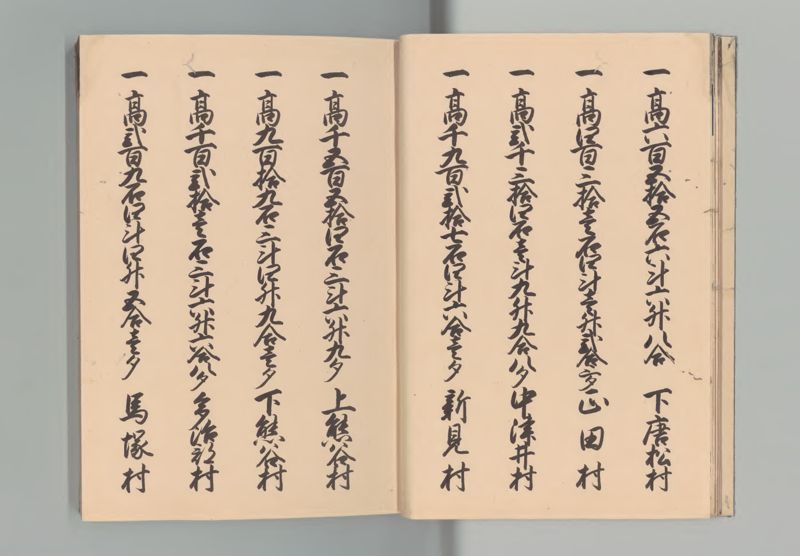 一 高六百五拾五石六斗六升八合 下唐松村
一 高四百三拾壱石四斗壱升弐合 正田村
一 高弐千三拾四石壱斗九升九合八夕 中津井村
一 高千九百弐拾七石四斗六合壱夕 新見村
一 高千五百五拾四石三斗六升九夕 上熊谷村
一 高九百拾九石三斗四升九合壱夕 下熊谷村
一 高千百弐拾壱石三斗六升六合八夕 村
一 高弐百九石四斗四升五合壱夕 馬塚村